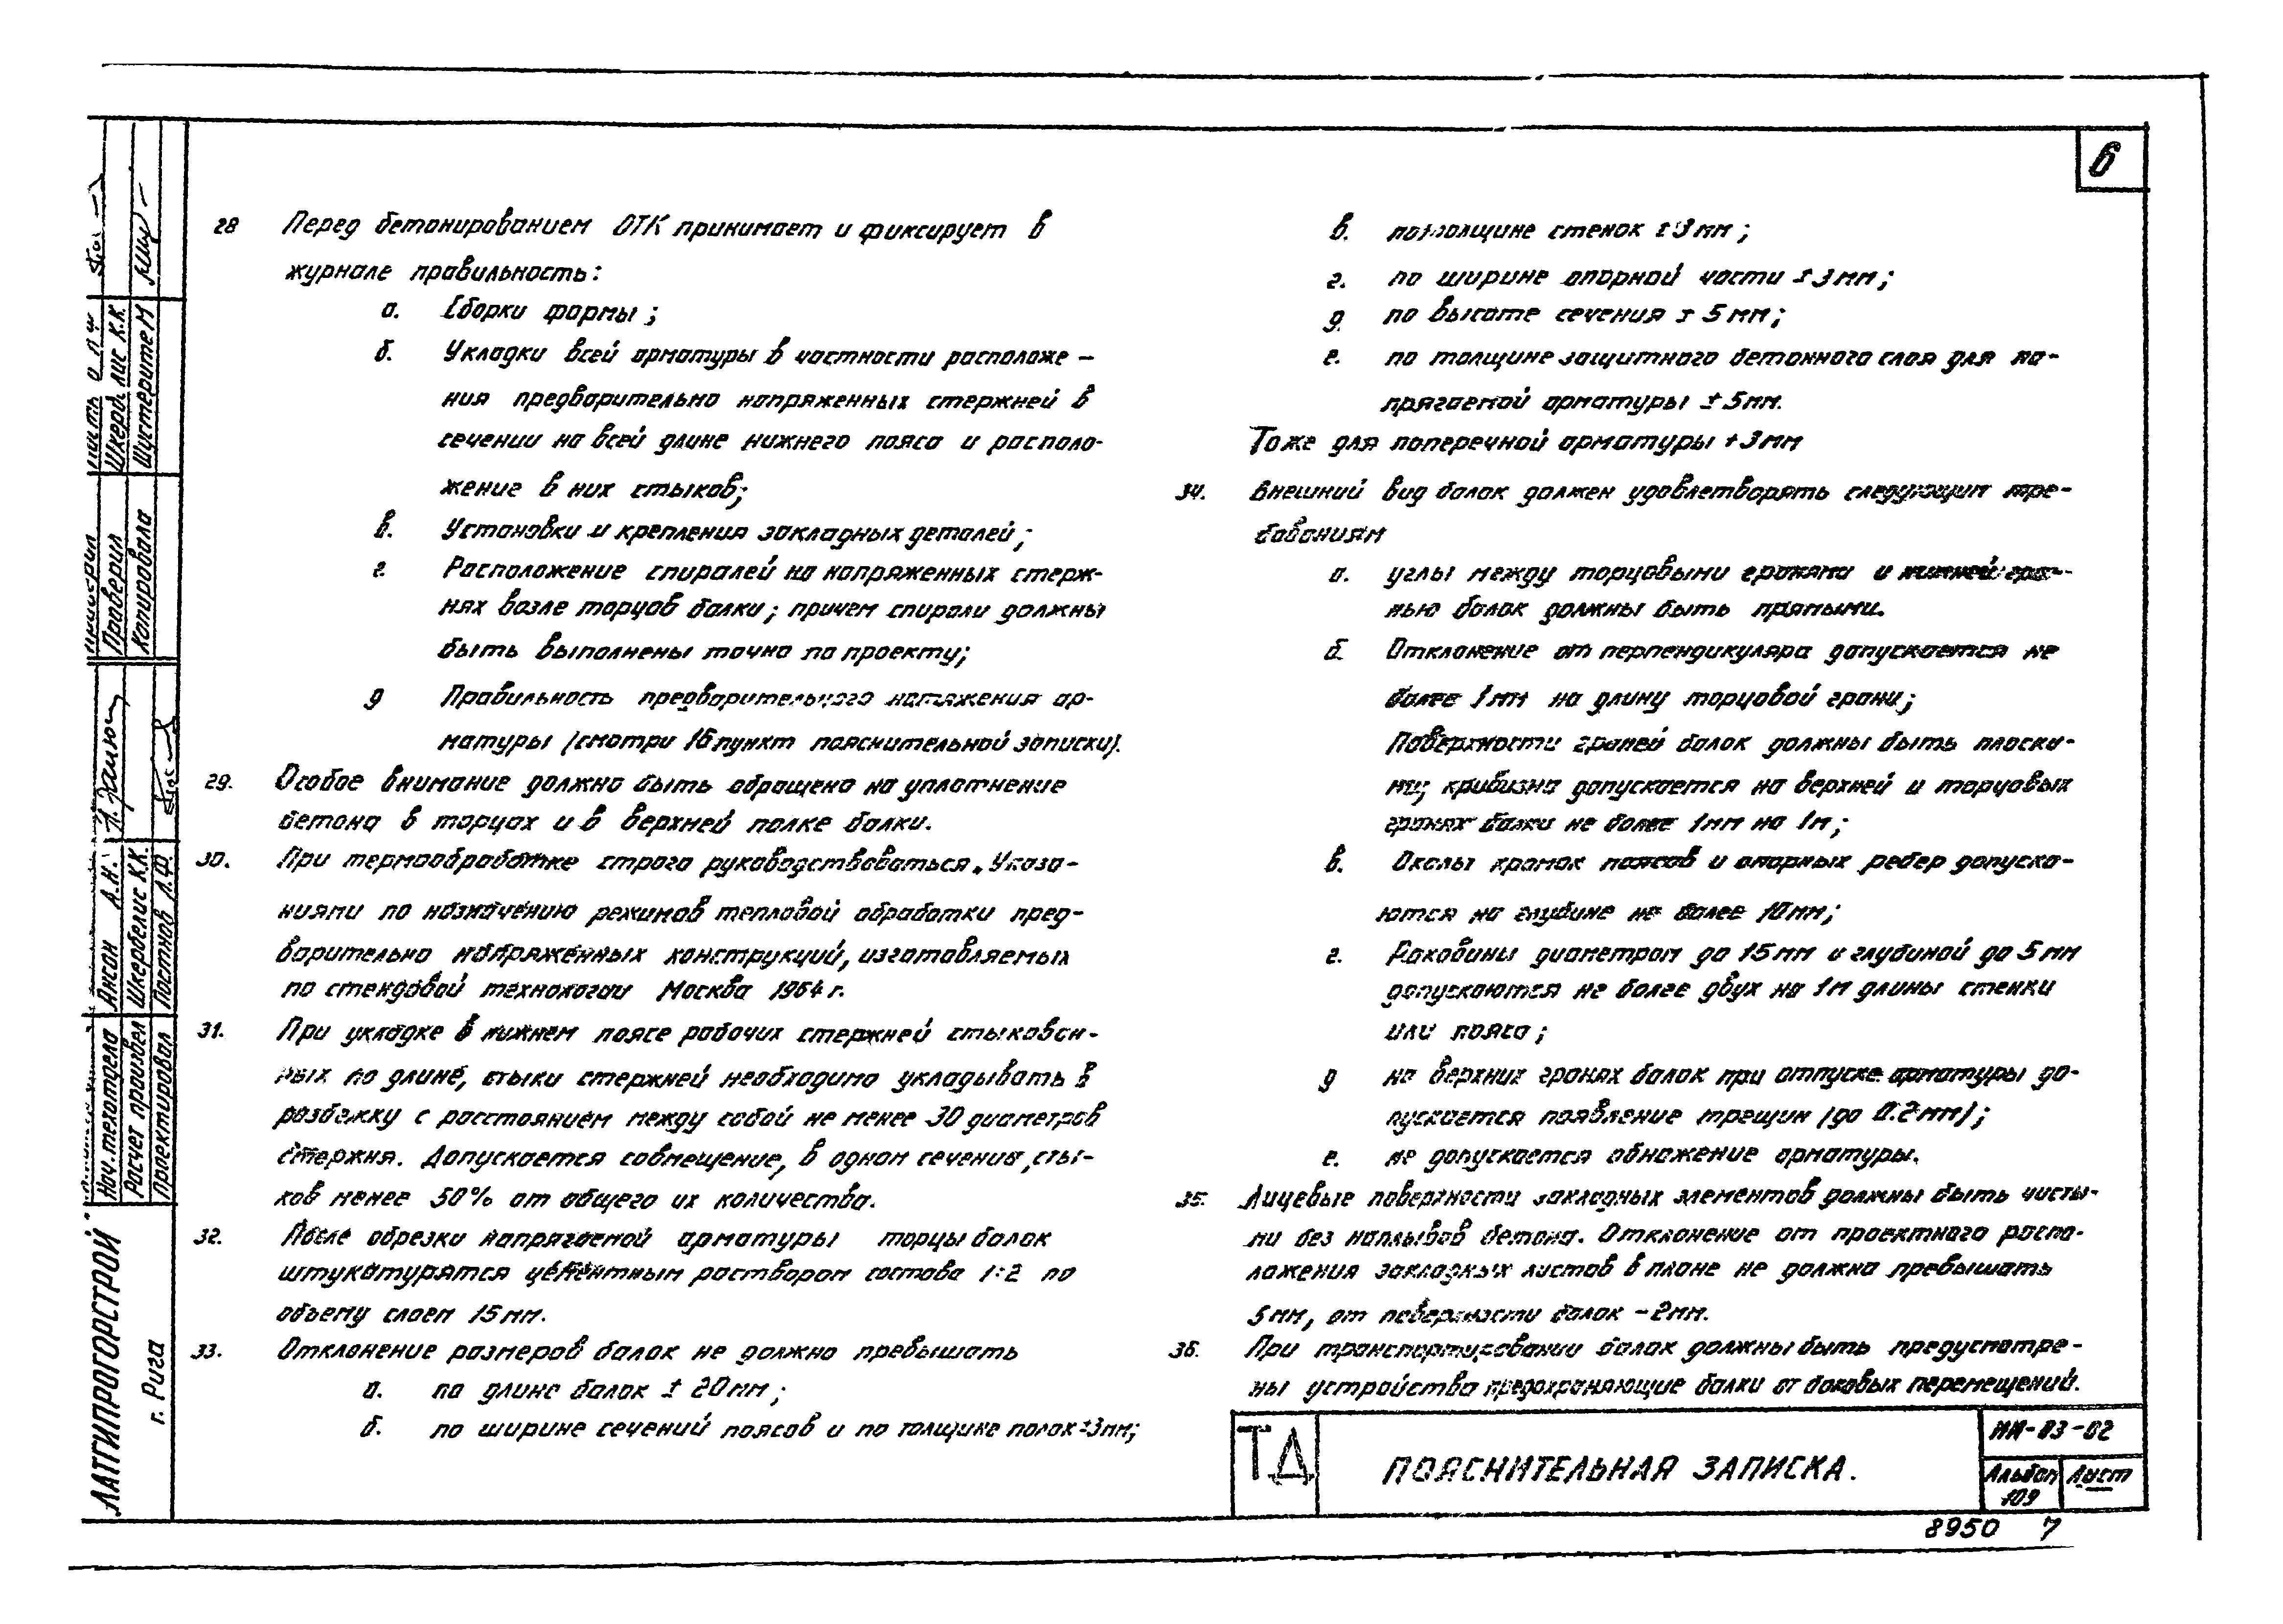 6
28 Перед бетонированием ОТК принимает и фиксирует в
журнале правильность:
а. Сборки формы;
б. Укладки всей арматуры в частности расположе-
ния предварительно напряженных стержней в
сечении на всей длине нижнего пояса и располо-
жение в них стыков;
в. Установки и крепления закладных деталей;
г. Расположение спиралей на напряженных стерж-
нях возле торцов балки; причем спирали должны
быть выполнены точно по проекту;
д Правильность предварительного натяжения ар-
матуры (смотри 16 пункт пояснительной записки).
29. Особое внимание должно быть обращено на уплотнение
бетона в торцах и в верхней полке балки.
30. При термообработке строго руководствоваться „Указа-
ниями по назначению режимов тепловой обработки пред-
варительно напряженных конструкций, изготовляемых
по стендовой технологии Москва 1964 г.
31. При укладке в нижнем поясе рабочих стержней стыкован-
ных по длине, стыки стержней необходимо укладывать в
разбежку с расстоянием между собой не менее 30 диаметров
стержня. Допускается совмещение, в одном сечении, сты-
ков менее 50% от общего их количества.
32. После обрезки напрягаемой арматуры торцы балок
штукатурятся цементным раствором состава 1:2 по
объему слоем 15 мм.
33. Отклонение размеров балок не должно превышать
а. по длине балок ± 20 мм;
б. по ширине сечений поясов и по толщине полок ±3 мм;
в. по толщине стенок ± 3 мм;
г. по ширине опорной части ± 3 мм;
д по высоте сечения ± 5 мм;
е. по толщине защитного бетонного слоя для на-
прягаемой арматуры ± 5 мм.
Тоже для поперечной арматуры + 3 мм
34. Внешний вид балок должен удовлетворять следующим тре-
бованиям
а. углы между торцовыми гранями и нижней гра-
нью балок должны быть прямыми.
б. Отклонение от перпендикуляра допускается не
более 1 мм на длину торцовой грани;
Поверхности граней балок должны быть плоски-
ми; кривизна допускается на верхней и торцовых
гранях балки не более 1 мм на 1 м;
в. Околы кромок поясов и опорных ребер допуска-
ются на глубине не более 10 мм;
г. Раковины диаметром до 15 мм и глубиной до 5 мм
допускаются не более двух на 1 м длины стенки
или пояса;
д на верхних гранях балок при отпуске арматуры до-
пускается появление трещин (до 0.2 мм);
е. не допускается обнажение арматуры.
35. Лицевые поверхности закладных элементов должны быть чисты-
ми без наплывов бетона. Отклонение от проектного распо-
ложения закладных листов в плане не должна превышать
5 мм, от поверхности балок - 2 мм.
36. При транспортировании балок должны быть предусмотре-
ны устройства предохраняющие балки от боковых перемещений.
ТД
ПОЯСНИТЕЛЬНАЯ ЗАПИСКА.
ИИ-03-02
Альбом 109
Лист
8950 7
ЛАТГИПРОГОРСТРОЙ
г. Рига
Нач. техотдела Ансон А.Н.
Расчет произвел Шкербелис К.К.
Проектировал Постнов Л.Ф.
Проверил Шкербелис К.К.
Копировала Шустерите М